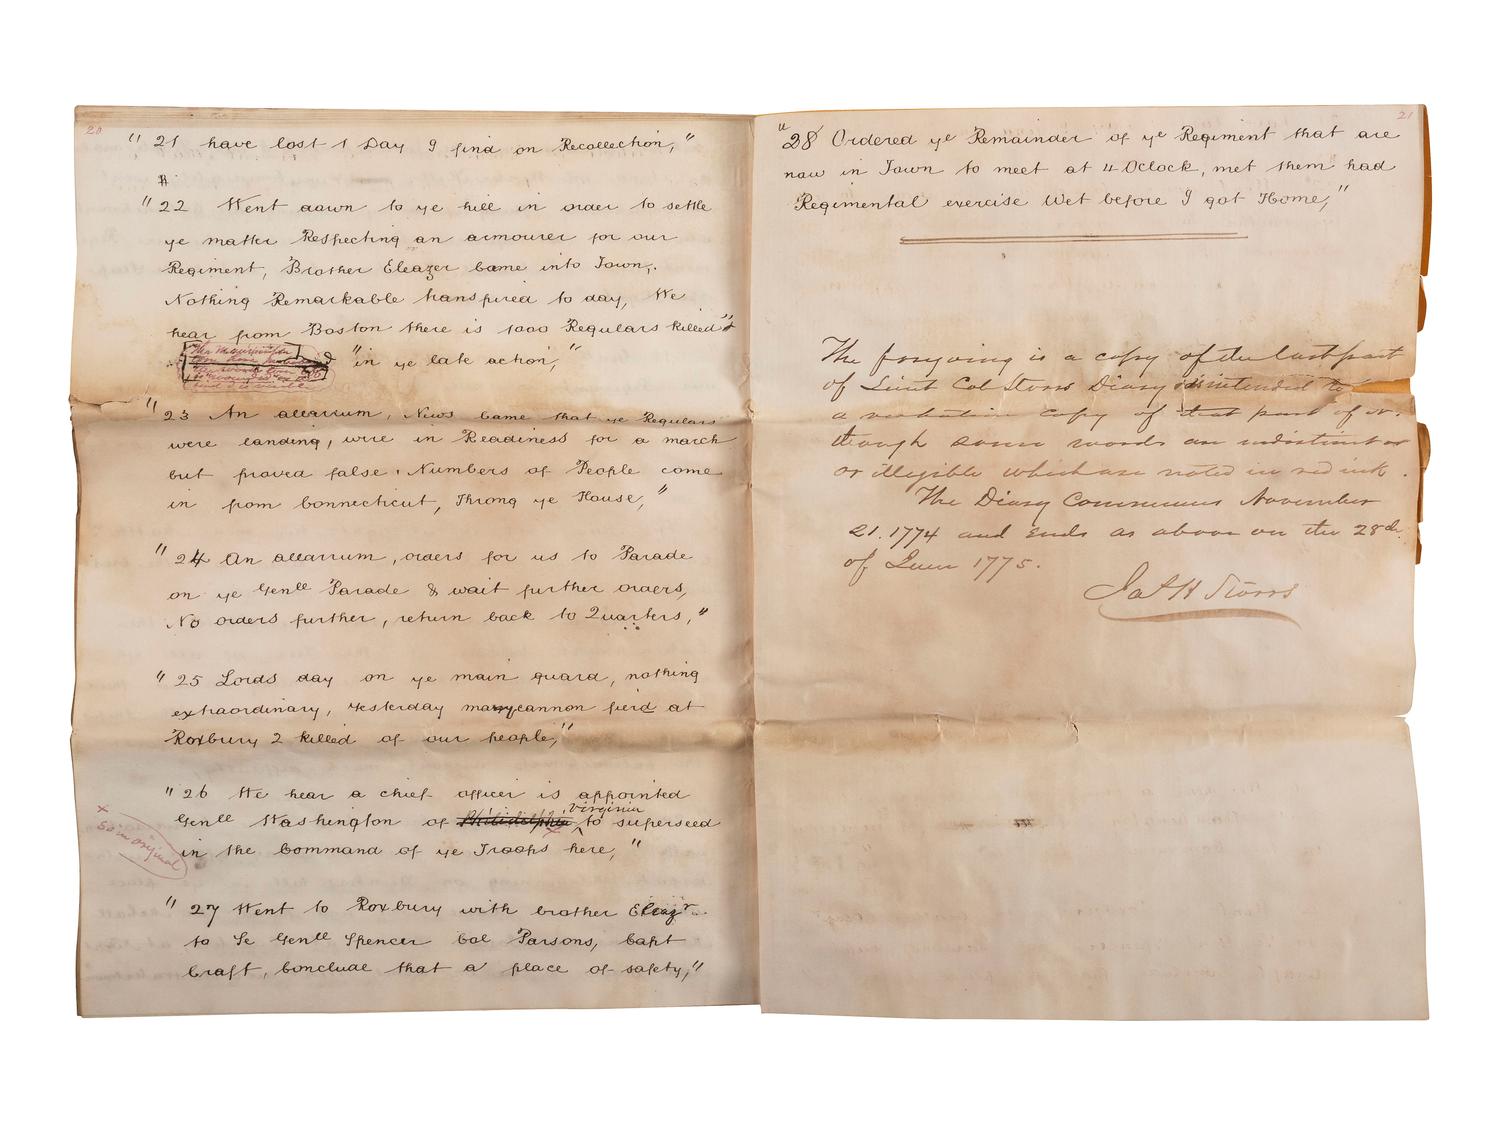 20
" 21 have lost 1 Day I find on Recollection,"
"22 Went down to ye hill in order to settle
ye matter Respecting an armourer for our
Regiment, Brother Eleazer Came into Town,.
Nothing Remarkable transpired to day, We
hear from Boston there is 1000 Regulars killed"
"in ye late action,"
"23 An allarrum, News Came that ye Regulars
were landing, were in Readiness for a march
but proved false. Numbers of People come
in from Connecticut, Throng ye House,"
"24 An allarrum, orders for us to Parade
on ye Genll Parade & wait further orders,
No orders further, return back to Quarters,"
"25 Lords day on ye main guard, nothing
extraordinary, Yesterday many cannon fierd at
Roxbury 2 killed of our people,"
"26 We hear a chief officer is appointed
Virginia
Genll Washington of Philidelphia to superseed
x
so in original
in the Command of ye Troops here,"
"27 Went to Roxbury with brother Eleazr
to Se Genll Spencer Col Parsons, Capt
Craft, Conclude that a place of safety,"
21
"28 Ordered ye Remainder of ye Regiment that are
now in Town to meet at 4 OClock, met them had
Regimental exercise Wet before I got Home,"
The foregoing is a copy of the last part
of Lieut Col Storrs Diary is intended to
a verbatim copy of that part of it.
though some words are indistinct or
or illegible which are noted in red ink.
The Diary Commences November
21. 1774 and Ends as above on the 28th
of June 1775.
Jas H Storrs